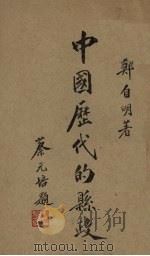 鄭自明著
中國歷代的縣政
蔡元培題
www.duxiu.com